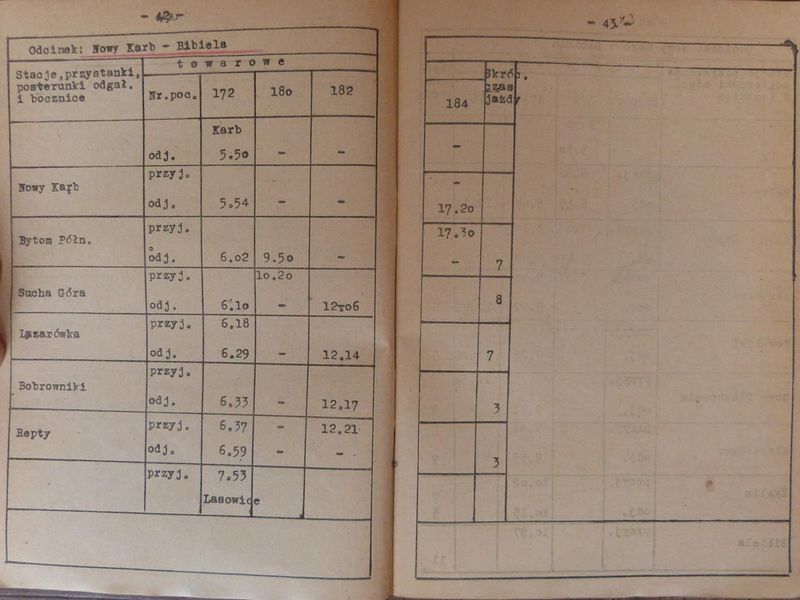 - 42 -
Odcinek: Nowy Karb - Bibiela
Stacje,przystanki,
posterunki odgał.
i bocznice
t o w a r o w e
Nr.poc. 172 180 182
Karb
odj. 5.50 - -
Nowy Karb
przyj.
odj. 5.54 - -
Bytom Półn.
przyj.
odj. 6.02 9.50 -
Sucha Góra
przyj. 10.20
odj. 6.10 - 12.06
Lazarówka
przyj. 6.18
odj. 6.29 - 12.14
Bobrowniki
przyj.
odj. 6.33 - 12.17
Repty
przyj. 6.37 - 12.21
odj. 6.59 - -
przyj. 7.53
Lasowice
- 43 -
184
Skróc.
czas
jazdy
-
-
17.20
17.30
- 7
8
7
3
3